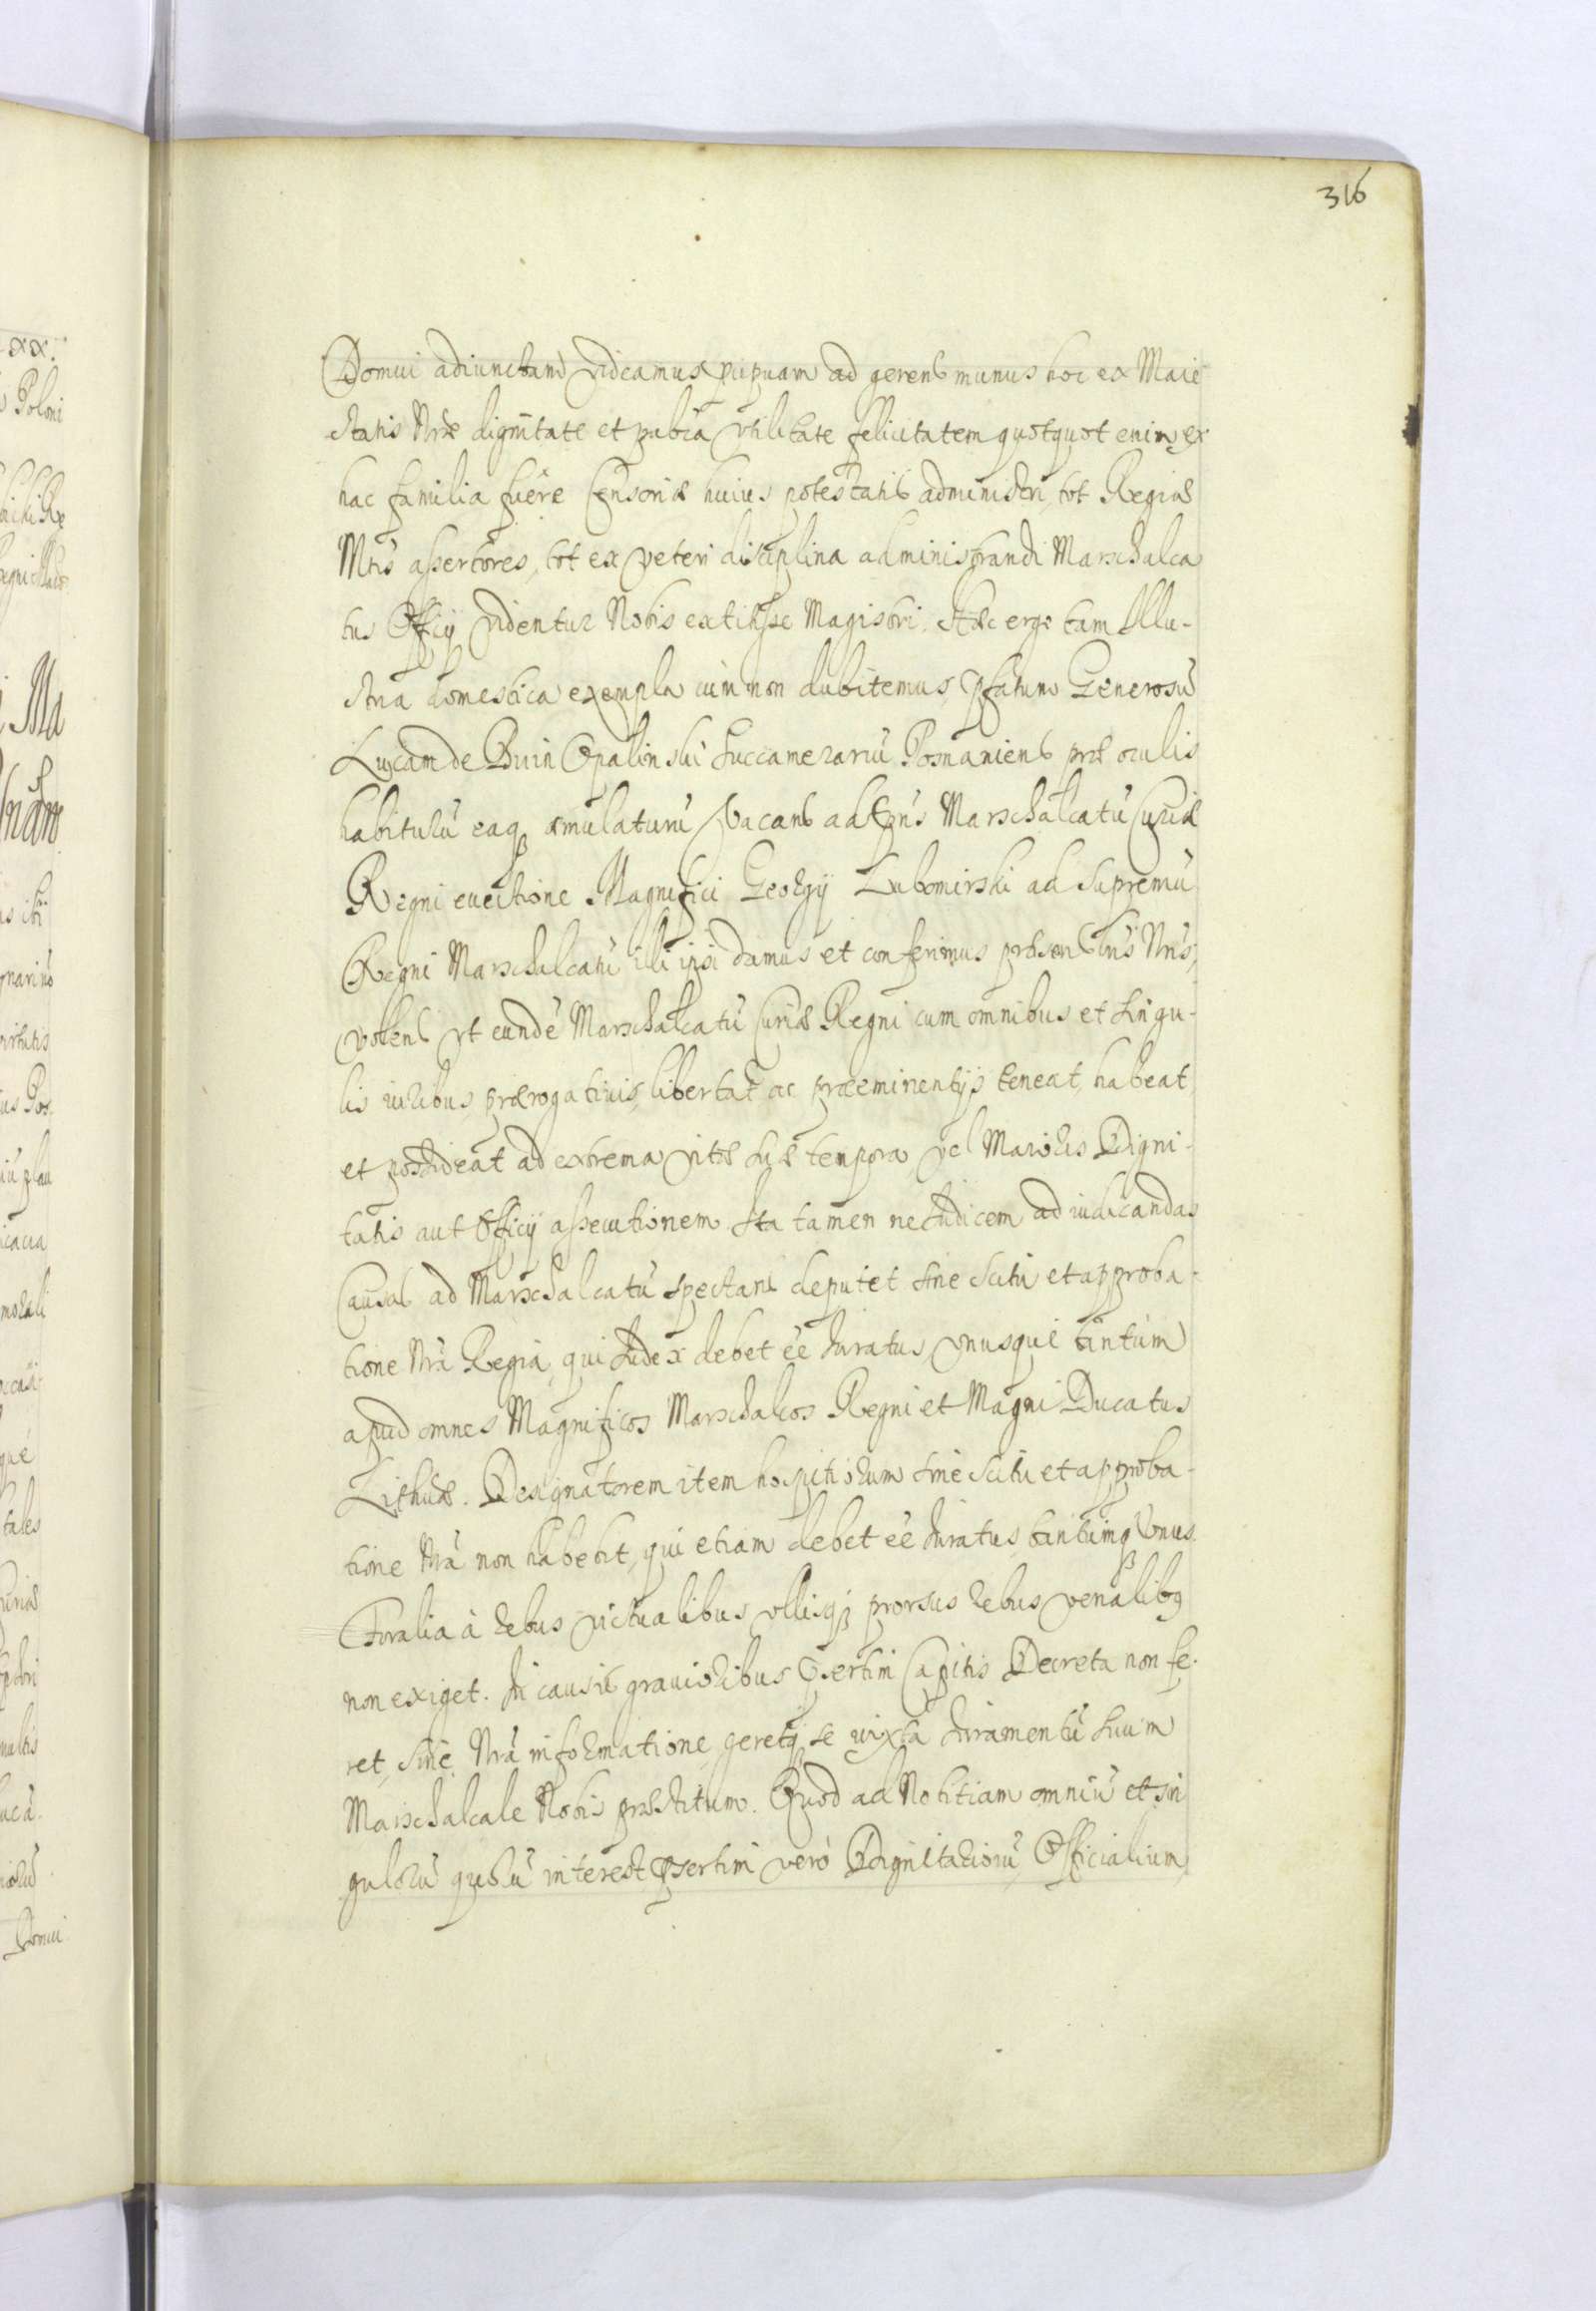 316
Domui adiunctam videamus ppuam ad gerend munus hoc ex Maie
statis Nrae dignitate et publica vtilitate felicitatem quotquot enim ex
hac familia fuere Censoriae huius potestatis administri, tot Regiae
Mtis assertores, tot ex veteri disciplina administrandi Marschalca
tus Officij videntur Nobis extitisse Magistri. Haec ergo tam Illu-
stria domestica exempla cùm non dubitemus, pfatum Generosũ
Lucam de Bnin Opalinski Succamerariũ Posnaniens prae oculis
habiturũ eaq aemulaturũ Vacant ad pns Marschalcatũ Curiae
Regni euectione Magnifici Georgij Lubomirski ad Supremũ
Regni Marschalcatũ illi ipsi damus et conferimus praesentibus Nris,
volens vt eundẽ Marschalcatũ Curiae Regni cum omnibus et singu-
lis iuribus, praerogatiuis, libertat ac praeeminentijs teneat, habeat,
et possideat ad extrema vitae suae tempora, vel Maioris Digni-
tatis aut Officij assecutionem. Ita tamen ne Iudicem ad iudicandas
Causas ad Marschalcatũ spectant deputet sine scitu et approba-
tione Nrã Regia, qui Iudex debet ẽe Iuratus, vnusque tantùm
apud omnes Magnificos Marschalcos Regni et Magni Ducatus
Lithuae. Designatorem item hospitiorum sine scitu et approba-
tione Nrã non habebit, qui etiam debet ẽe Iuratus, tantumq Vnus.
Foralia à rebus victualibus vllisq prorsus rebus venalibq
non exiget. In causis grauioribus psertim Capitis Decreta non fe-
ret, sine Nrã informatione, geretq se iuxta Iuramentũ suum
Marschalcale Nobis praestitum. Quod ad Notitiam omniũ et sin
gulorũ quorũ interest psertim verò Dignitariorũ Officialium,